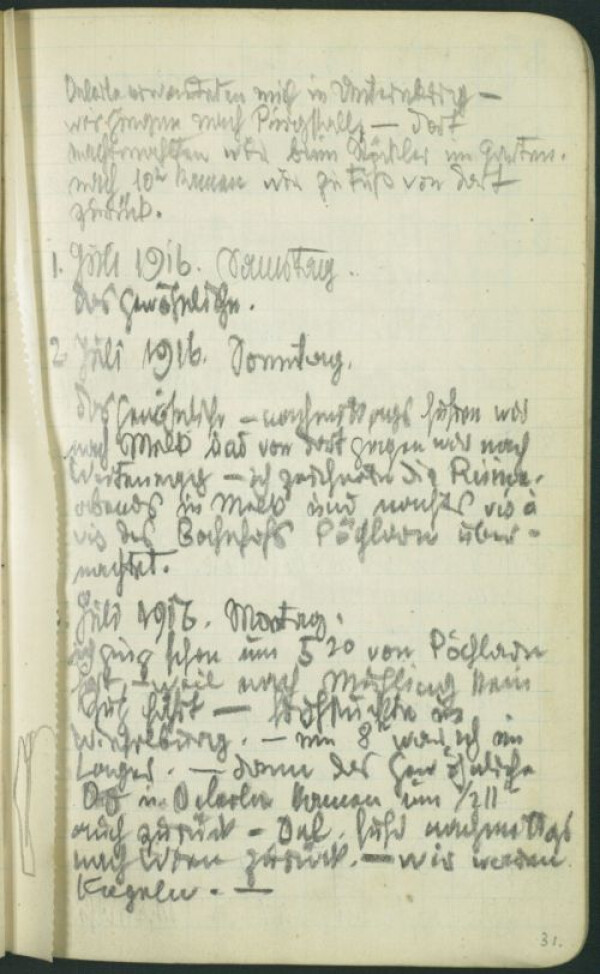 erwarteten mich in
wir gingen nach Purgstall, – dort
nachtmahlten wir beim im Garten.
nach 10h kamen wir zu Fuß von dort
zurück.
1. Juli 1916. Samstag.
das gewöhnliche.
2 Juli 1916. Sonntag.
das gewöhnliche – nachmittags fuhren wir
nach Melk und von dort gingen wir nach
– ich zeichnete die Ruine.
abends in Melk und nachts vis à
vis des Bahnhofs Pöchlarn über-
nachtet.
Juli 1916. Montag.
ich ging schon um 5 20 von Pöchlarn
fort – weil nach kein
Zug fährt – frühstückte in
Wieselburg. – um 8h war ich im
Lager. – dann das gewöhnliche
kamen um 1/2 11h
auch zurück – fuhr nachmittags
nach Wien zurück. – wir waren
Kegeln. –
31.